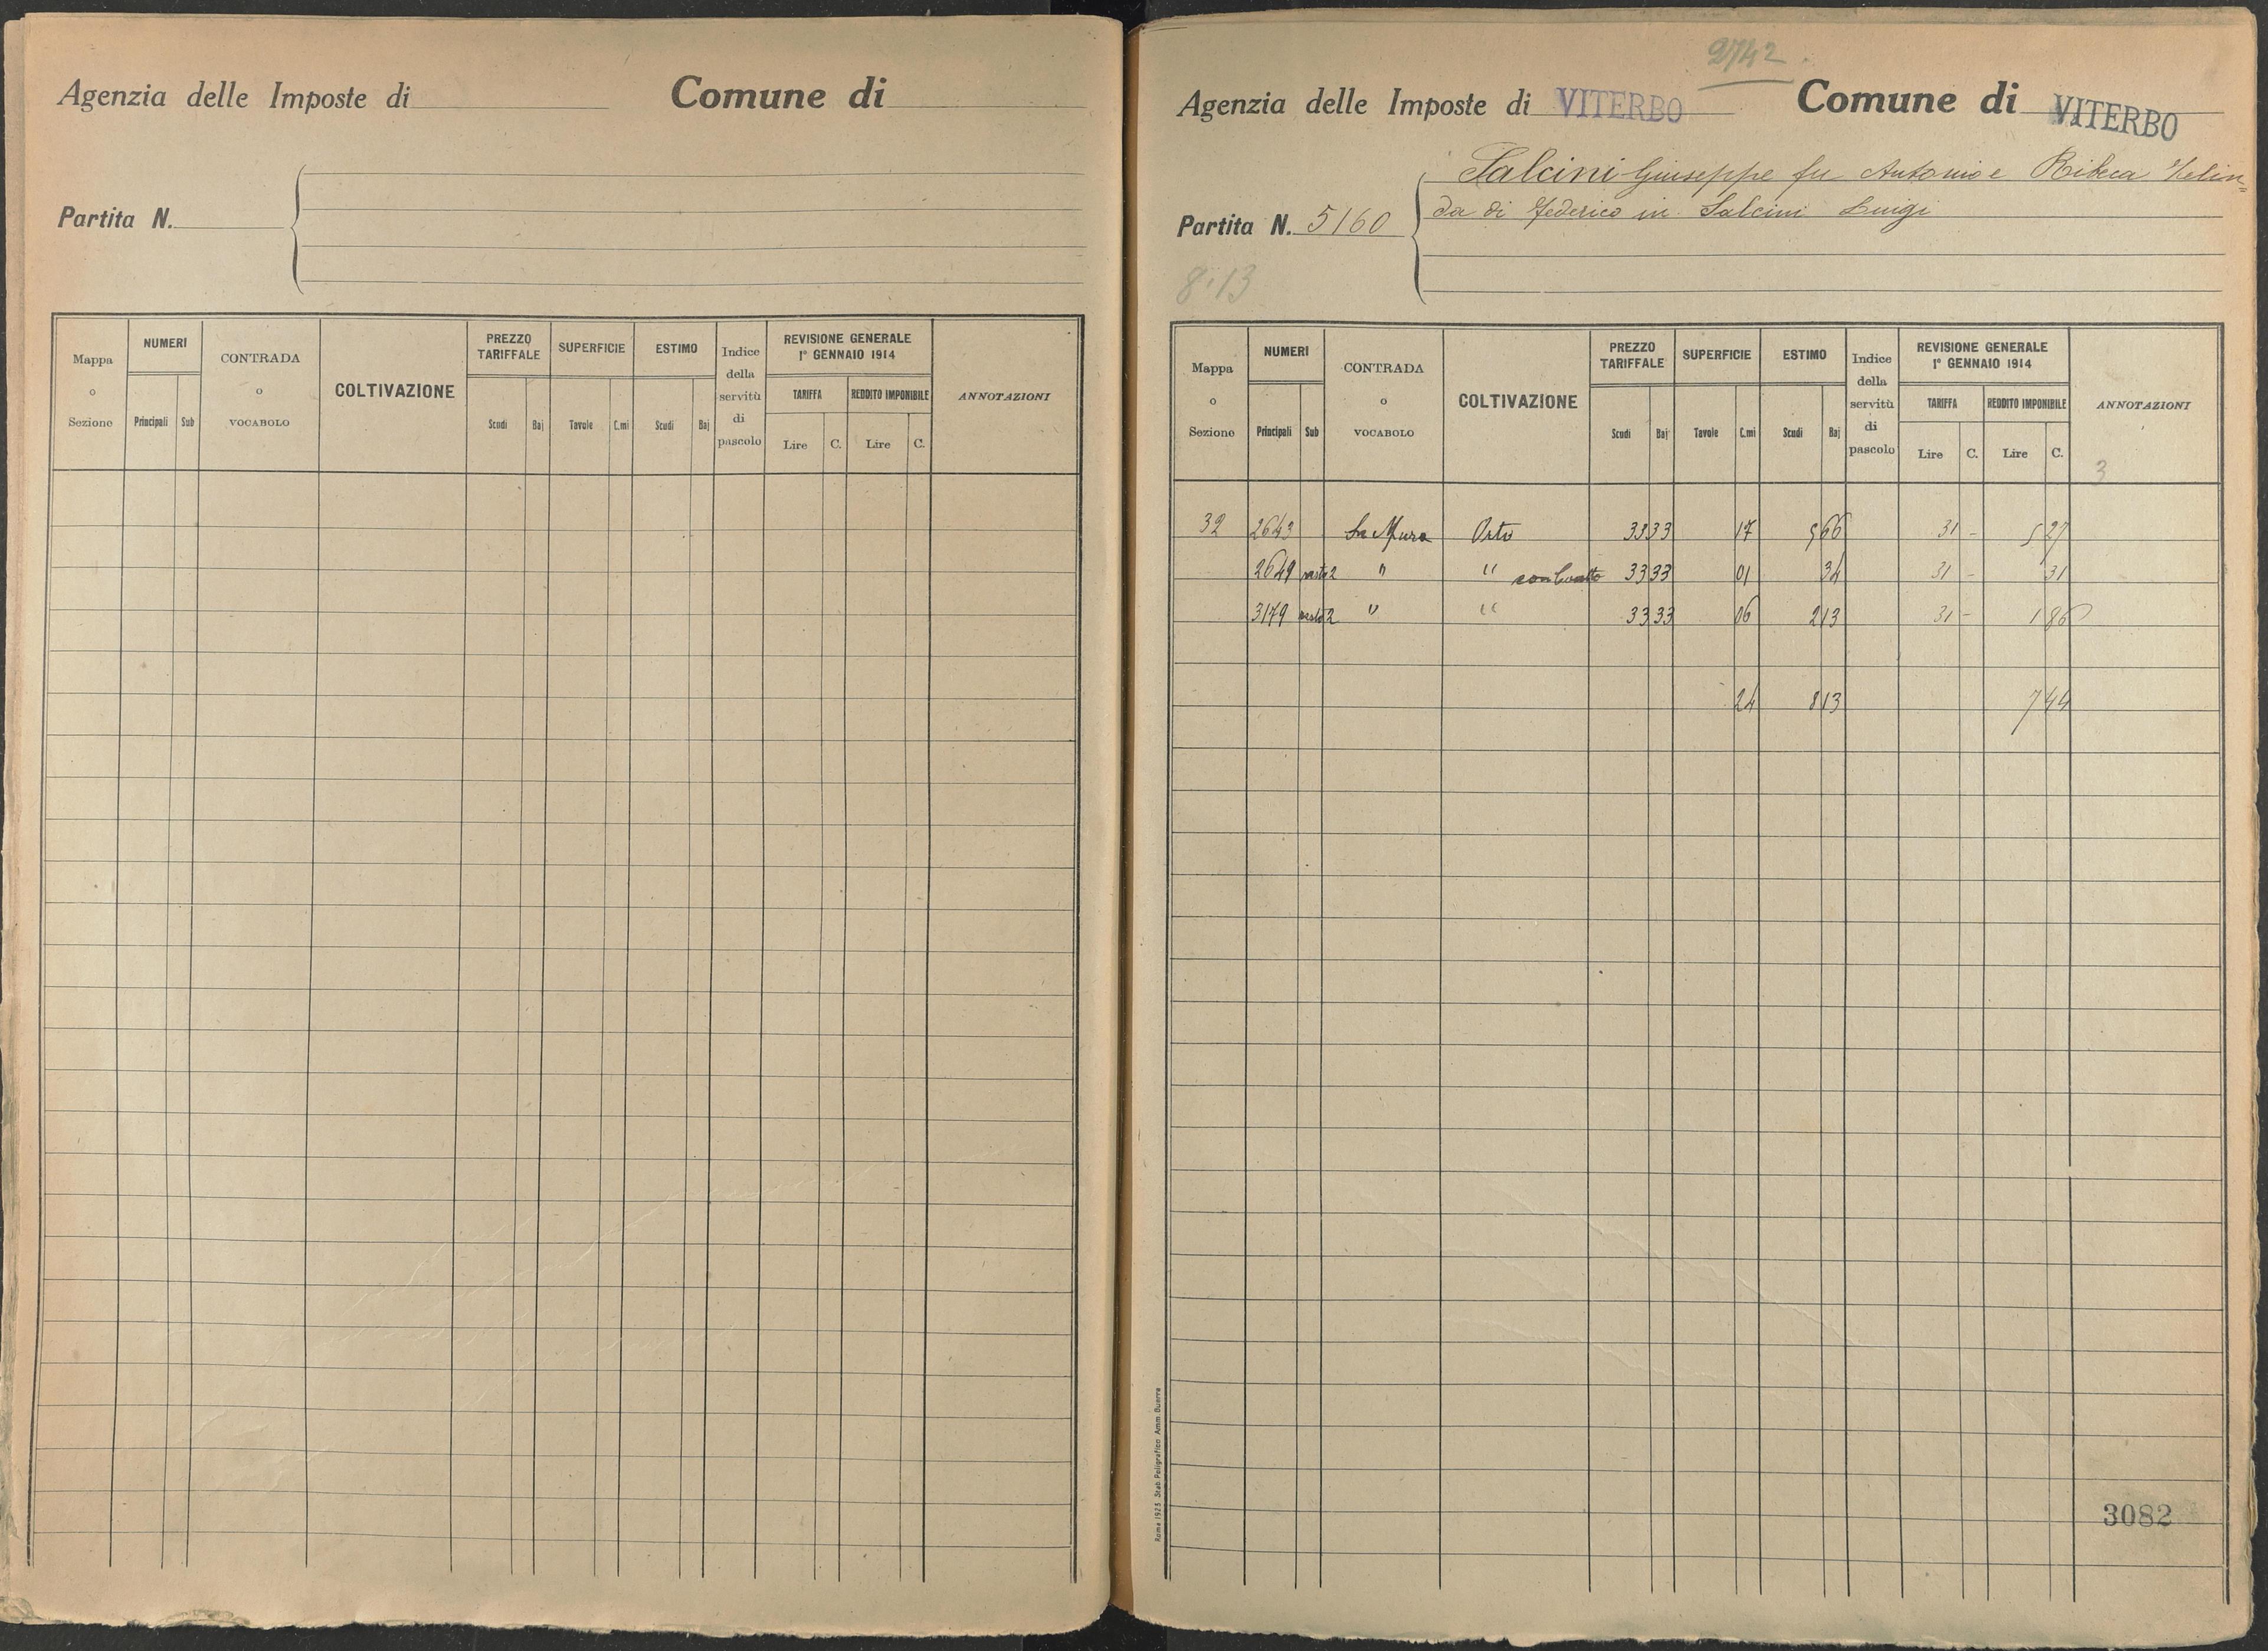 Agenzia delle Imposte di
Comune di
Partita N.
Mappa o Sezione
NUMERI
Principali Sub
CONTRADA o VOCABOLO
COLTIVAZIONE
PREZZO TARIFFALE
Scudi Baj
SUPERFICIE
Tavole C.mi
ESTIMO
Scudi Baj
Indice della servitù di pascolo
REVISIONE GENERALE
1° GENNAIO 1914
TARIFFA
Lire C.
REDDITO IMPONIBILE
Lire C.
ANNOTAZIONI
2742
Agenzia delle Imposte di VITERBO
Comune di VITERBO
Salcini Giuseppe fu Antonio e Ribeca
da di Federico in Salcini Luigi
Partita N. 5160
8.13
Mappa o Sezione
NUMERI
Principali Sub
CONTRADA o VOCABOLO
COLTIVAZIONE
PREZZO TARIFFALE
Scudi Baj
SUPERFICIE
Tavole C.mi
ESTIMO
Scudi Baj
Indice della servitù di pascolo
REVISIONE GENERALE
1° GENNAIO 1914
TARIFFA
Lire C.
REDDITO IMPONIBILE
Lire C.
ANNOTAZIONI
3
32 2643 Le Mura Orto 33 33 17 5 66 31 - 5 27
2649 2 " " 33 33 01 34 31 - 31
3179 2 " " 33 33 06 2 13 31 - 1 86
24 8 13 7 44
Roma 1923 Stab. Poligrafico Amm. Guerra
3082